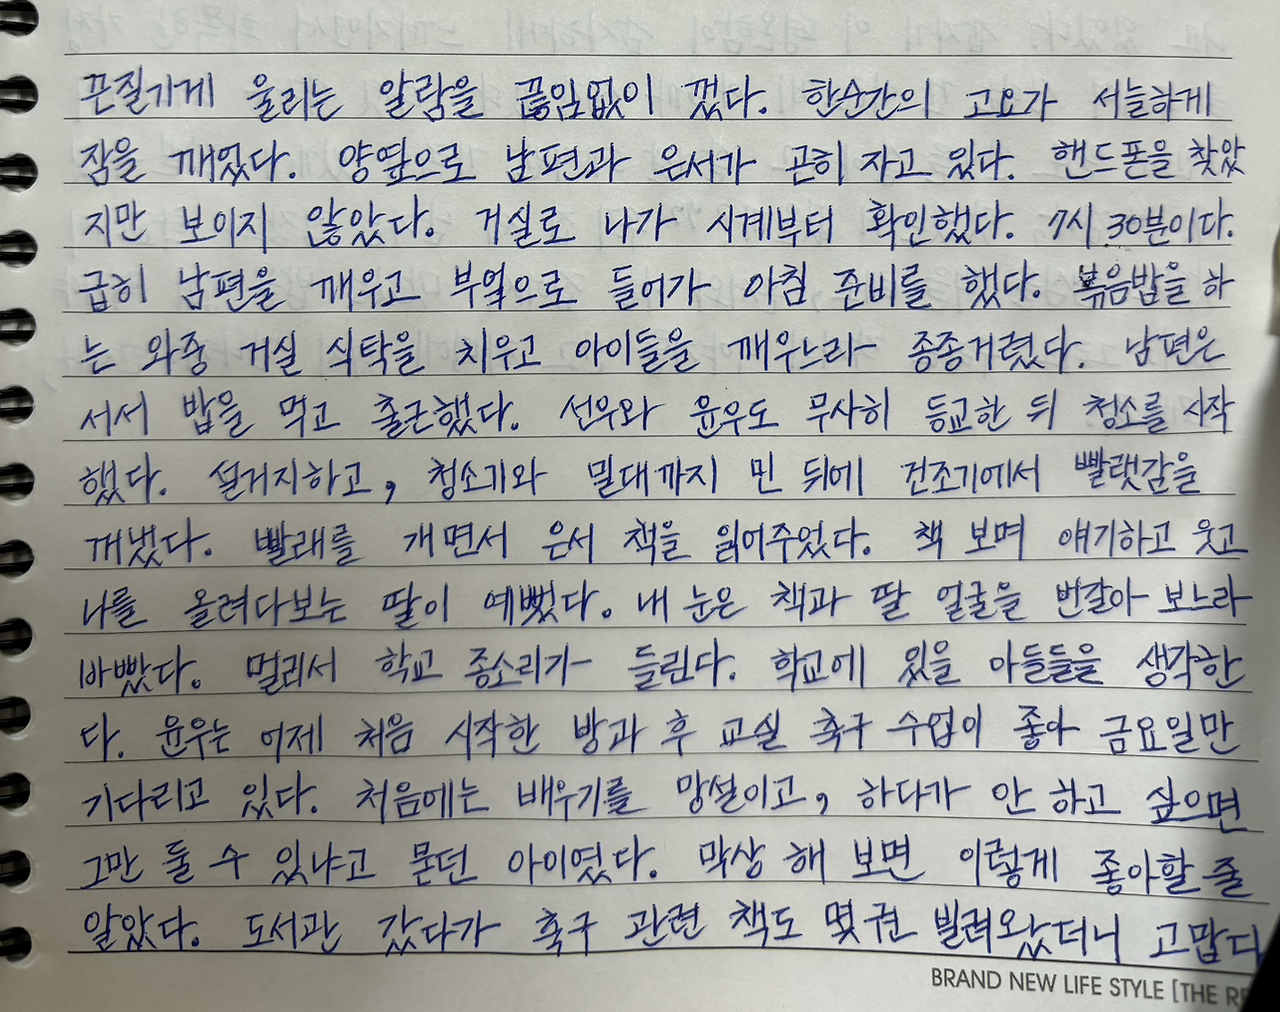 끈질기게 울리는 알람을 끊임없이 껐다. 한순간의 고요가 서늘하게
잠을 깨웠다. 양옆으로 남편과 은서가 곤히 자고 있다. 핸드폰을 찾았
지만 보이지 않았다. 거실로 나가 시계부터 확인했다. 7시 30분이다.
급히 남편을 깨우고 부엌으로 들어가 아침 준비를 했다. 볶음밥을 하
는 와중 거실 식탁을 치우고 아이들을 깨우느라 종종거렸다. 남편은
서서 밥을 먹고 출근했다. 선우와 윤우도 무사히 등교한 뒤 청소를 시작
했다. 설거지하고, 청소기와 밀대까지 민 뒤에 건조기에서 빨랫감을
꺼냈다. 빨래를 개면서 은서 책을 읽어주었다. 책 보며 얘기하고 웃고
나를 올려다보는 딸이 예뻤다. 내 눈은 책과 딸 얼굴을 번갈아 보느라
바빴다. 멀리서 학교 종소리가 들린다. 학교에 있을 아들들을 생각한
다. 윤우는 어제 처음 시작한 방과 후 교실 축구 수업이 좋아 금요일만
기다리고 있다. 처음에는 배우기를 망설이고, 하다가 안 하고 싶으면
그만 둘 수 있냐고 묻던 아이였다. 막상 해 보면 이렇게 좋아할 줄
알았다. 도서관 갔다가 축구 관련 책도 몇권 빌려왔더니 고맙다
BRAND NEW LIFE STYLE [THE RE